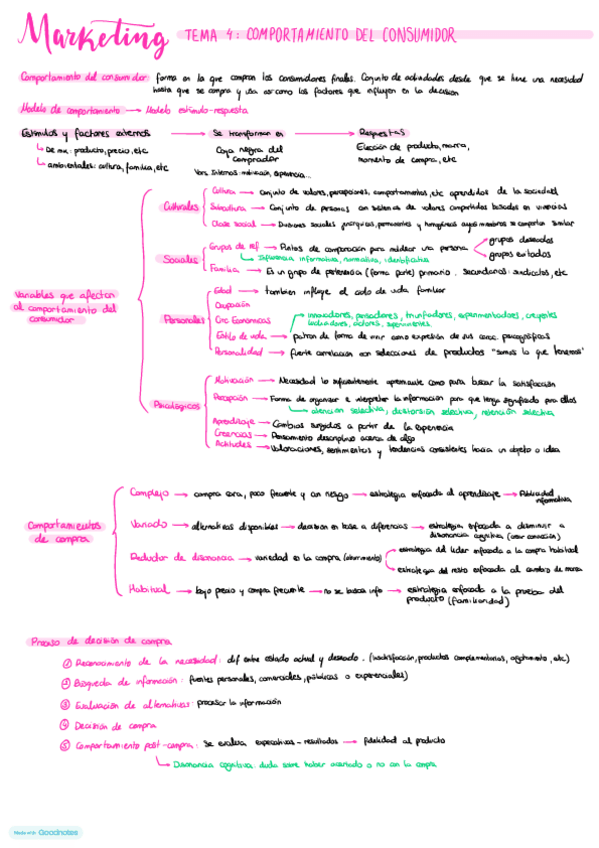 Marketing TEMA 4: COMPORTAMIENTO DEL CONSUMIDOR
Comportamiento del consumidor: forma en la que compran los consumidores finales. Conjunto de actividades desde que se tiene una necesidad
hasta que se compra y usa así como los factores que influyen en la decisión
Modelo de comportamiento → Modelo estímulo-respuesta
Estímulos y factores externos → Se transforman en → Respuestas
De mk: producto, precio, etc
ambientales: cultura, familia, etc
Caja negra del
comprador
Vars. Internas: motivación, experiencia...
Elección de producto, marca,
momento de compra, etc
Variables que afectan
al comportamiento del
consumidor
Culturales
Cultura → conjunto de valores, percepciones, comportamientos, etc aprendidos de la sociedad
Subcultura → Conjunto de personas con sistemas de valores compartidos basados en vivencias
Clase social → Divisiones sociales jerárquicas, permanentes y homogéneas cuyos miembros se comportan similar
Sociales
Grupos de ref → Puntos de comparación para moldear una persona
grupos deseados
grupos evitados
Influencia informativa, normativa, identificativa
Familia → Es un grupo de pertenencia (forma parte) primario. secundarios: sindicatos, etc
Personales
Edad → también influye el ciclo de vida familiar
Ocupación
Circ Económicas
innovadores, pensadores, triunfadores, experimentadores, creyentes
luchadores, actores, supervivientes
Estilo de vida → patrón de forma de vivir como expresión de sus carac. psicográficas
Personalidad → fuerte correlación con selecciones de productos "somos lo que tenemos"
Psicológicos
Motivación → Necesidad lo suficientemente apremiante como para buscar la satisfacción
Percepción → Forma de organizar e interpretar la información para que tenga significado para ellos
atención selectiva, distorsión selectiva, retención selectiva
Aprendizaje → Cambios surgidos a partir de la experiencia
Creencias → Pensamiento descriptivo acerca de algo
Actitudes → Valoraciones, sentimientos y tendencias consistentes hacia un objeto o idea
Comportamientos
de compra
Complejo → compra cara, poco frecuente y con riesgo → estrategia enfocada al aprendizaje → Publicidad
informativa
Variado → alternativas disponibles → decisión en base a diferencias → estrategia enfocada a disminuir a
disonancia cognitiva
Reductor de disonancia → variedad en la compra (aburrimiento)
estrategia del líder enfocada a la compra habitual
estrategia del resto enfocada al cambio de marca
Habitual → bajo precio y compra frecuente → no se busca info → estrategia enfocada a la prueba del
producto (familiaridad)
Proceso de decisión de compra
① Reconocimiento de la necesidad: dif entre estado actual y deseado. (Insatisfacción, productos complementarios, agotamiento, etc)
② Búsqueda de información: fuentes personales, comerciales, públicas o experienciales)
③ Evaluación de alternativas: procesar la información
④ Decisión de compra
⑤ Comportamiento post-compra: se evalúa expectativas-resultados → fidelidad al producto
Disonancia cognitiva: duda sobre haber acertado o no con la compra
Made with Goodnotes